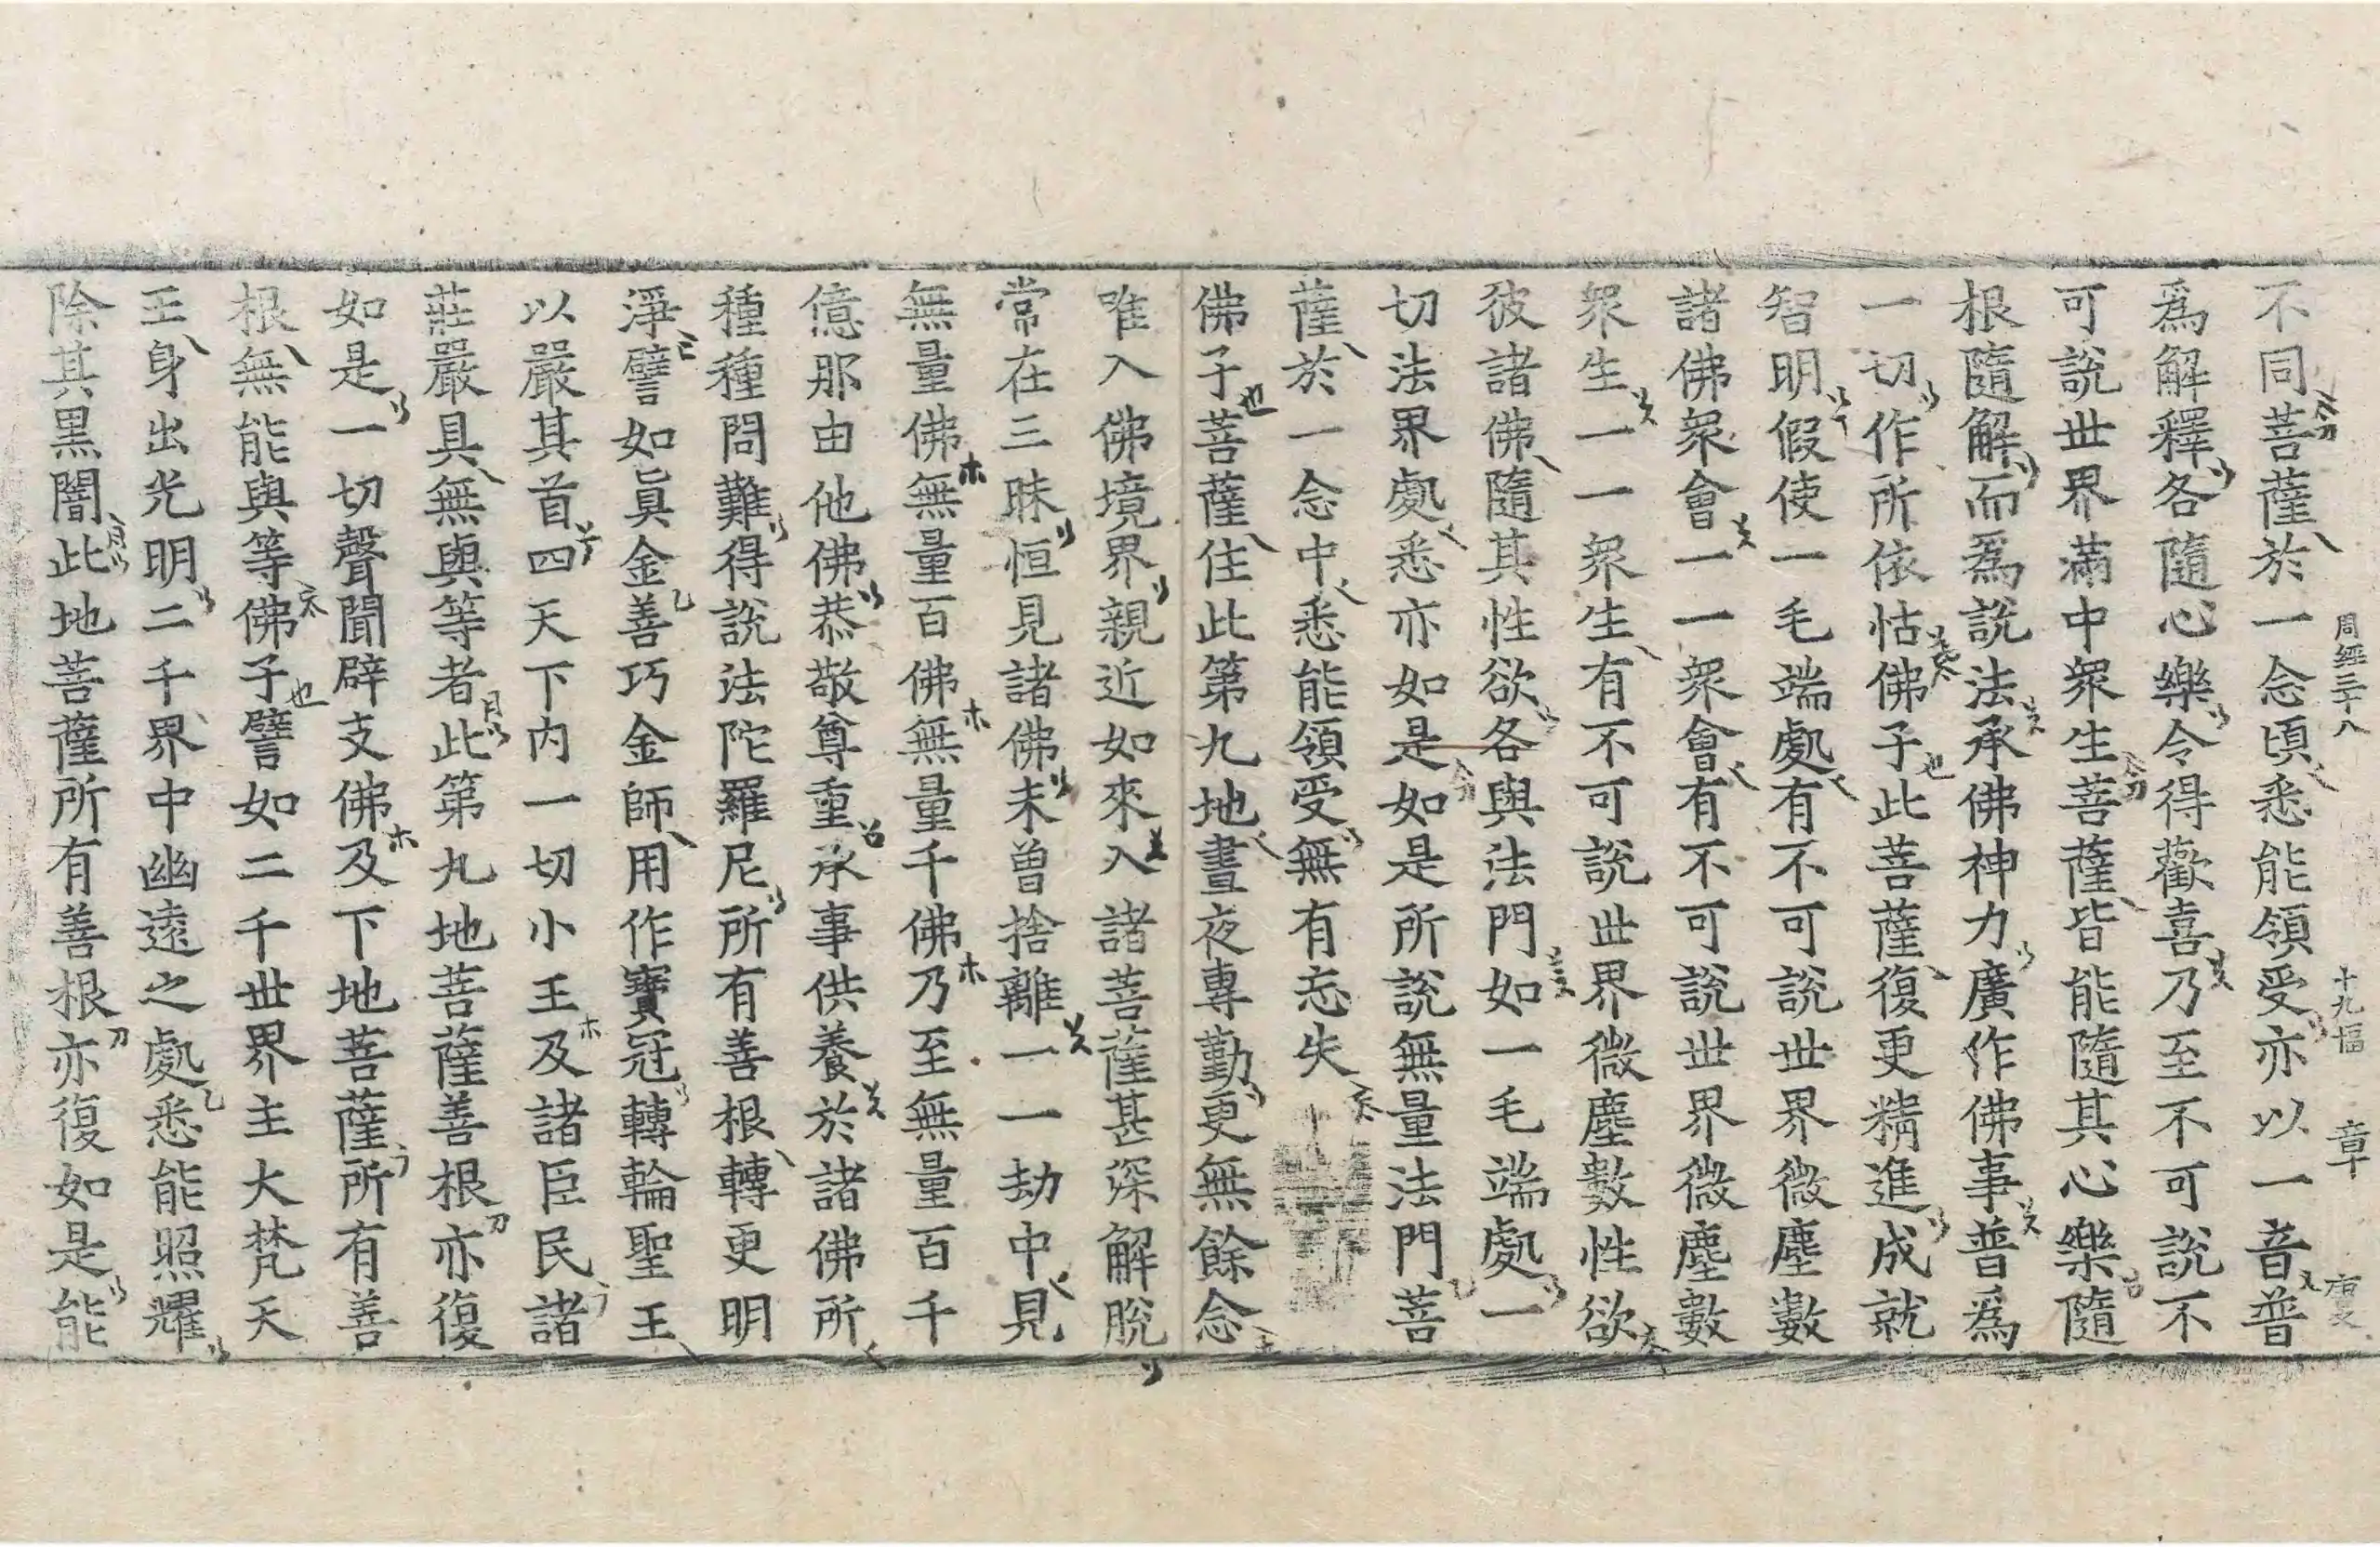 周經三十八 十九幅 章
不同菩薩於一念頃悉能領受亦以一音普
爲解釋各隨心樂令得歡喜乃至不可說不
可說世界滿中衆生菩薩皆能隨其心樂隨
根隨解而爲說法承佛神力廣作佛事普爲
一切作所依怙佛子此菩薩復更精進成就
智明假使一毛端處有不可說世界微塵數
諸佛衆會一一衆會有不可說世界微塵數
衆生一一衆生有不可說世界微塵數性欲
彼諸佛隨其性欲各與法門如一毛端處一
切法界處悉亦如是如是所說無量法門菩
薩於一念中悉能領受無有忘失
佛子菩薩住此第九地晝夜專勤更無餘念
唯入佛境界親近如來入諸菩薩甚深解脫
常在三昧恒見諸佛未曾捨離一一劫中見
無量佛無量百佛無量千佛乃至無量百千
億那由他佛恭敬尊重承事供養於諸佛所
種種問難得說法陀羅尼所有善根轉更明
淨譬如眞金善巧金師用作寶冠轉輪聖王
以嚴其首四天下内一切小王及諸臣民諸
莊嚴具無與等者此第九地菩薩善根亦復
如是一切聲聞辟支佛及下地菩薩所有善
根無能與等佛子譬如二千世界主大梵天
王身出光明二千界中幽遠之處悉能照耀
除其黑闇此地菩薩所有善根亦復如是能